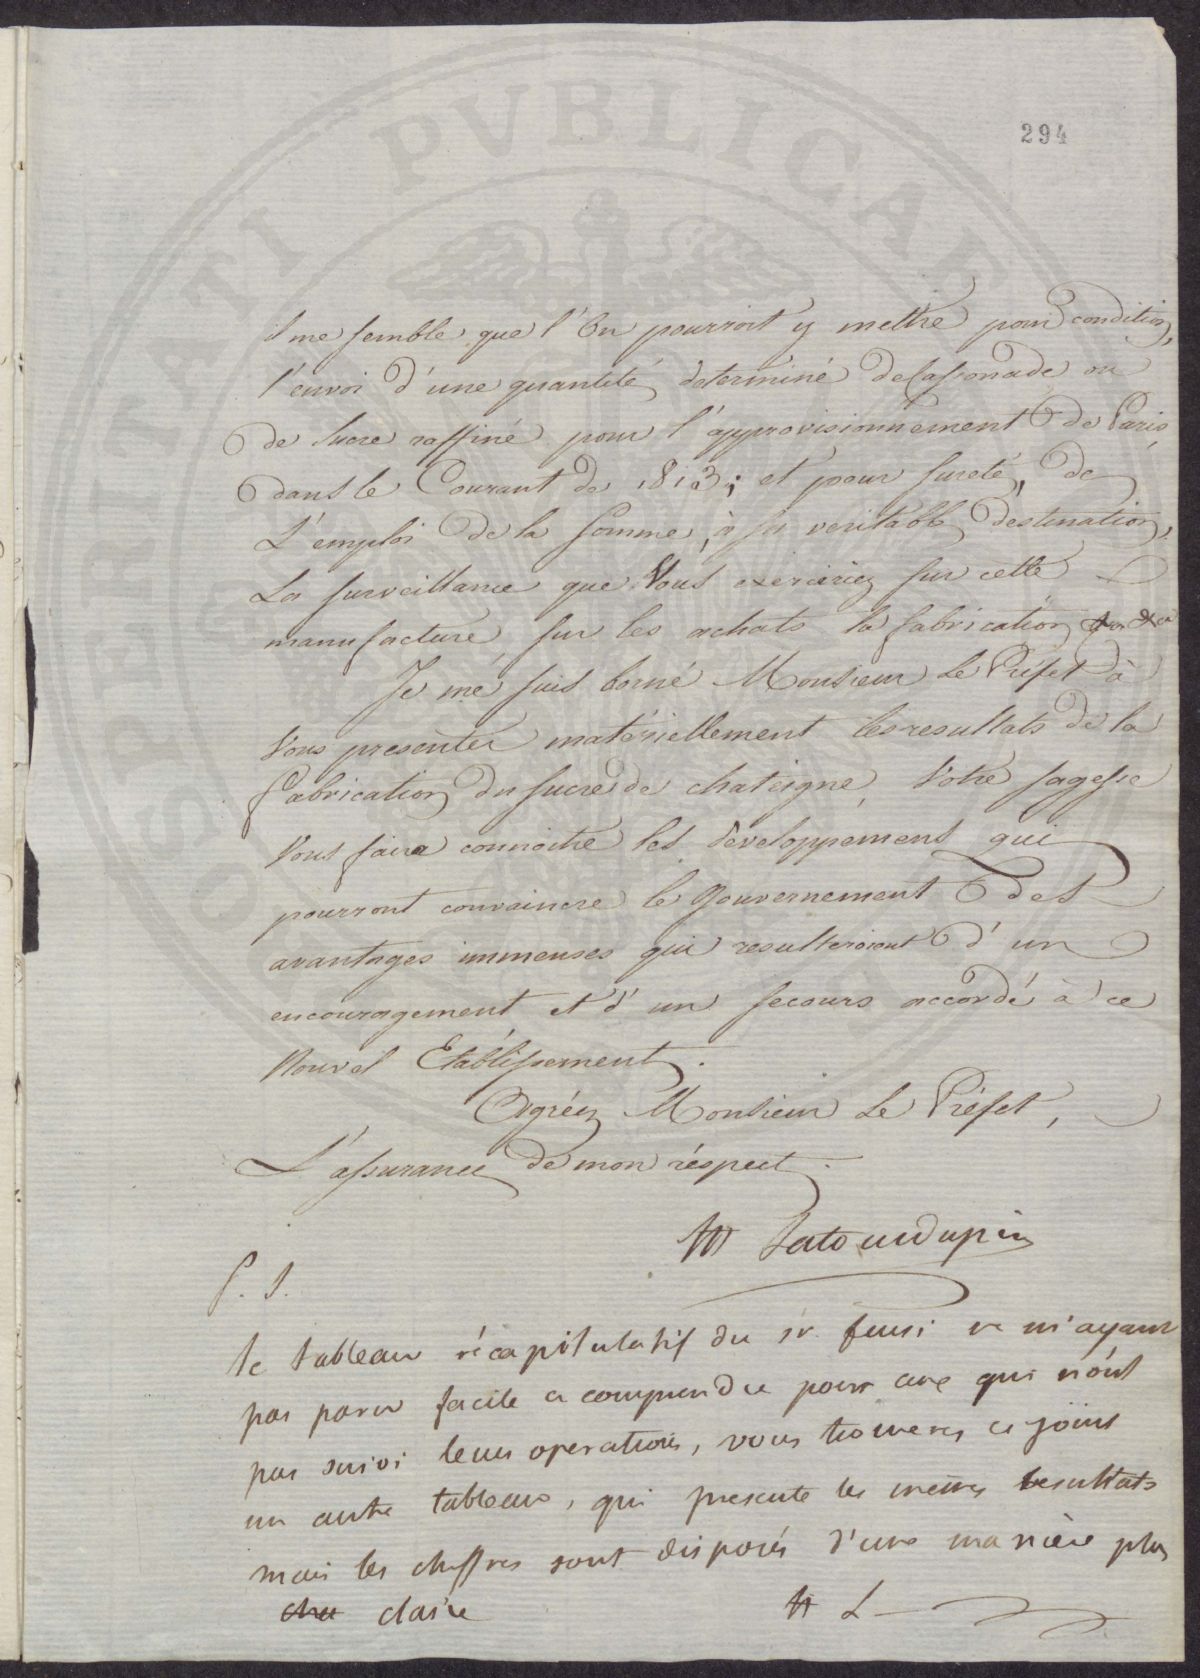 294
il me semble que l'On pourroit y mettre pour condition,
l'envoi d'une quantité determiné de Cassonade ou
de Sucre raffiné pour l'approvisionnement de Paris,
dans le Courant de 1813; et pour sureté, de
L'emploi de la somme, à sa veritable destination,
La surveillance que Vous exerceriez sur cette
manufacture, sur les achats la fabrication
Je me suis borné Monsieur Le Préfet à
Vous presenter matériellement les resultats de la
fabrication du sucre de chateigne, Votre sagesse
Vous faira connoitre les developpements qui
pourront convaincre le gouvernement des
avantages immenses qui resulteroient d'un
encouragement et d'un secours accordé à ce
Nouvel Etablissement.
Agréez Monsieur Le Préfet,
L'assurance de mon réspect.
Latourdupin
P. S.
le tableau récapitulatif du sr. ne m'ayant
pas paru facile a comprendre pour ceux qui n'ont
pas suivi leurs operations, vous trouveres ci joint
un autre tableau, qui presente les mêmes resultats
mais les chiffres sont disposés d'une manière plus
claire L